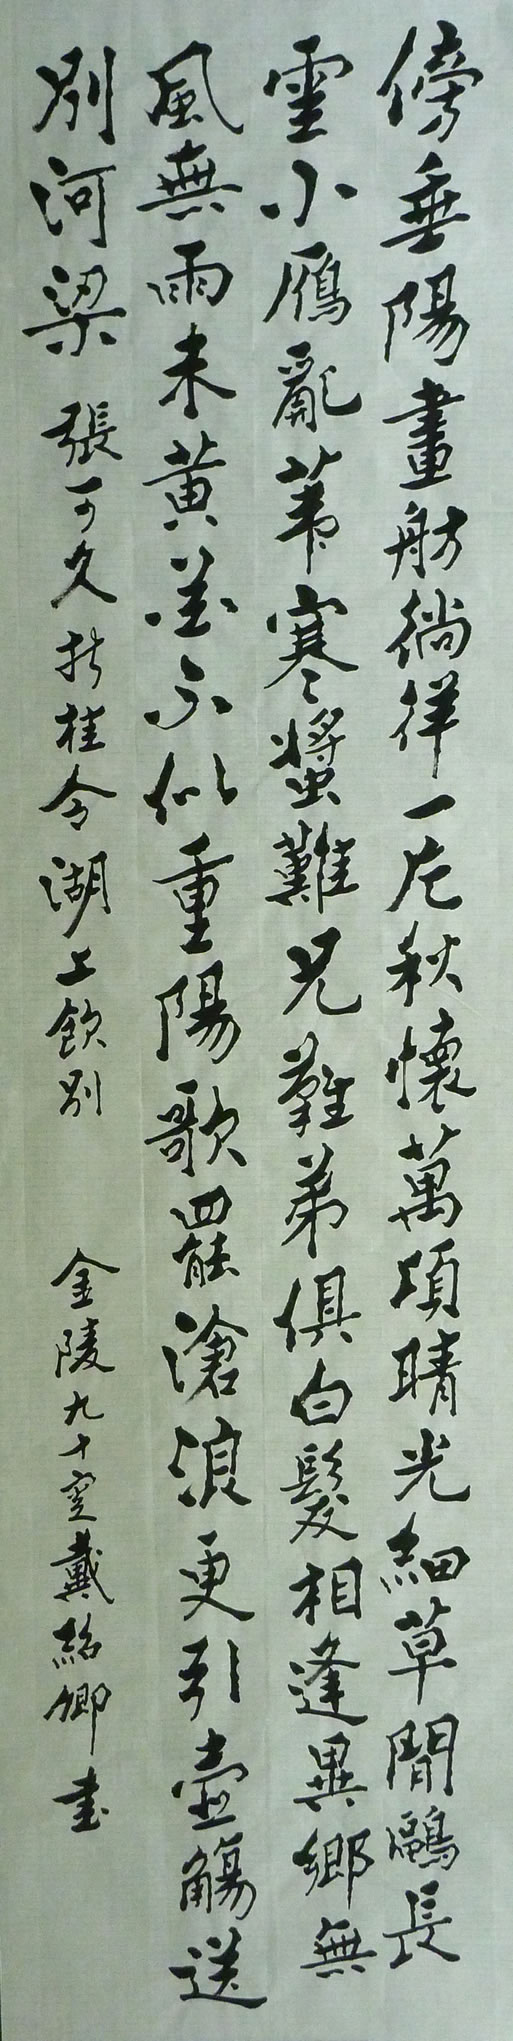 傍垂陽畫舫徜徉一片秋懷萬頃晴光細草閒鷗長
雲小雁亂葦寒螿難兄難弟俱白髮相逢異鄉無
風無雨未黃花不似重陽歌罷滄浪更引壺觴送
別河梁 張可久折桂令湖上飲別 金陵九十叟戴紹卿書